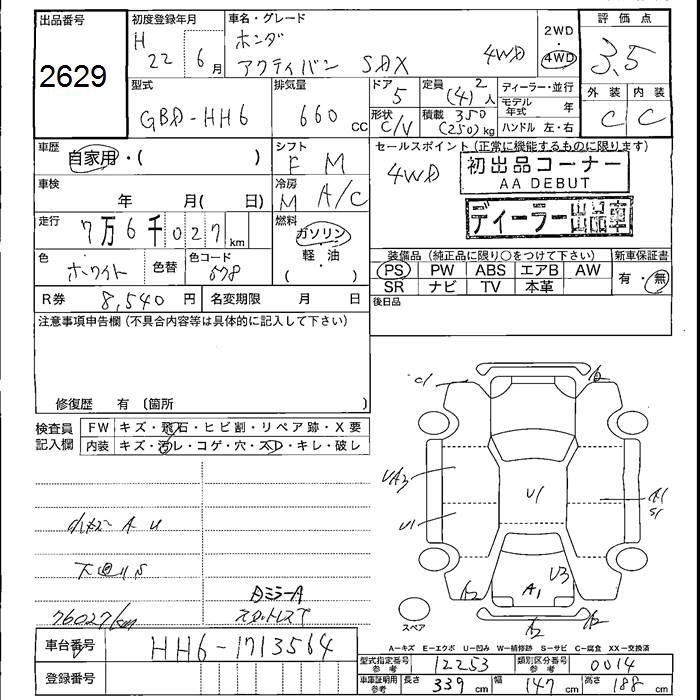 出品番号
2629
初度登録年月
H 22年 6月
車名・グレード
ホンダ
アクティバン SDX 4WD
2WD
4WD
評価点
3.5
外装 内装
C C
型式
GBD-HH6
排気量
660 cc
ドア
5
形状
C/V
定員 2
(4)人
積載 350
(250)kg
ディーラー・並行
モデル年式 年
ハンドル 左・右
車歴
自家用・( )
シフト
F M
セールスポイント (正常に機能するものに限ります)
4WD
初出品コーナー
AA DEBUT
ディーラー出品車
車検
年 月( 日)
冷房
M A/C
走行
7万6千027km
燃料
ガソリン
軽・油
( ・ )
色
ホワイト
色替
色コード
578
装備品 (純正品に限り○をつけて下さい)
PS PW ABS エアB AW
SR ナビ TV 本革
新車保証書
有・無
R券 8,540円
名変期限 月 日
後日品
注意事項申告欄 (不具合内容等は具体的に記入して下さい)
修復歴 有 〔箇所 〕
検査員
記入欄
FW キズ・飛石・ヒビ割・リペア跡・X要
内装 キズ・汚レ・コゲ・穴・スレ・キレ・破レ
A U
76027km
DミラーA
UA3
U1
U1
A1
S1
U3
A1
A2
A2
A2
スペア
A-キズ E-エクボ U-凹み W-補修跡 S-サビ C-腐食 XX-交換済
車台番号 HH6-1713564
登録番号
型式指定番号 参考 12253
類別区分番号 参考 0014
車庫証明用 参考 長さ 339 cm 幅 147 cm 高さ 188 cm